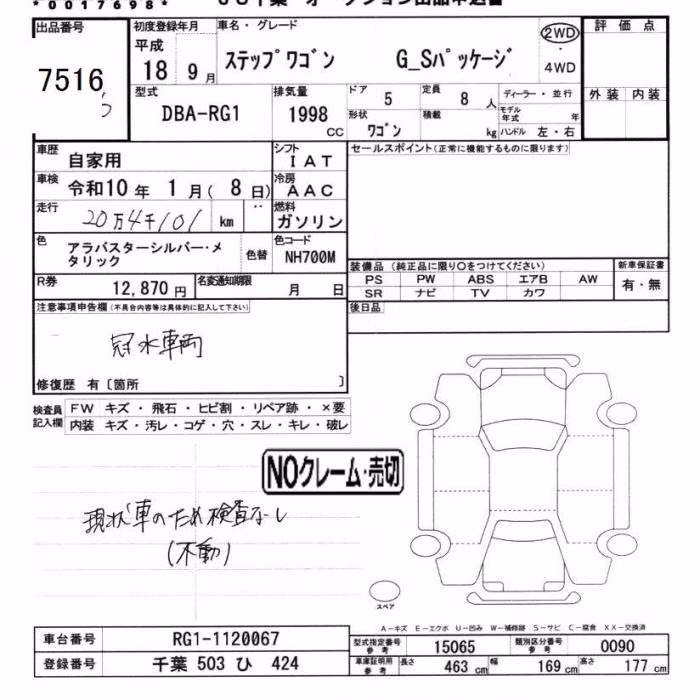 *0017698*
出品番号
7516
初度登録年月
平成
18 9月
車名・グレード
ステップワゴン G_Sパッケージ
2WD
4WD
評価点
外装 内装
型式
DBA-RG1
排気量
1998
CC
ドア
5
定員
8 人
形状
ワゴン
積載
kg
ディーラー・並行
モデル年式 年
ハンドル 左・右
車歴
自家用
シフト
IAT
セールスポイント(正常に機能するものに限ります)
車検
令和10年 1月( 8日)
冷房
AAC
走行
20万4千101 km
燃料
ガソリン
色
アラバスターシルバー・メ
タリック
色替
色コード
NH700M
装備品 (純正品に限り○をつけてください)
新車保証書
PS PW ABS エアB AW
SR ナビ TV カワ
有・無
R券
12,870円
名変通知期限
月 日
後日品
注意事項申告欄(不具合内容等は具体的に記入して下さい)
冠水車両
修復歴 有〔箇所 〕
検査員
記入欄
FW キズ ・ 飛石 ・ ヒビ割 ・ リペア跡 ・ ×要
内装 キズ ・ 汚レ ・ コゲ ・ 穴 ・ スレ ・ キレ ・ 破レ
NOクレーム・売切
現状車のため検査なし
(不動)
スペア
A-キズ E-エクボ U-凹み W-補修跡 S-サビ C-腐食 XX-交換済
車台番号
RG1-1120067
型式指定番号
参考
15065
類別区分番号
参考
0090
登録番号
千葉 503 ひ 424
車庫証明用
参考
長さ
463 cm
幅
169 cm
高さ
177 cm